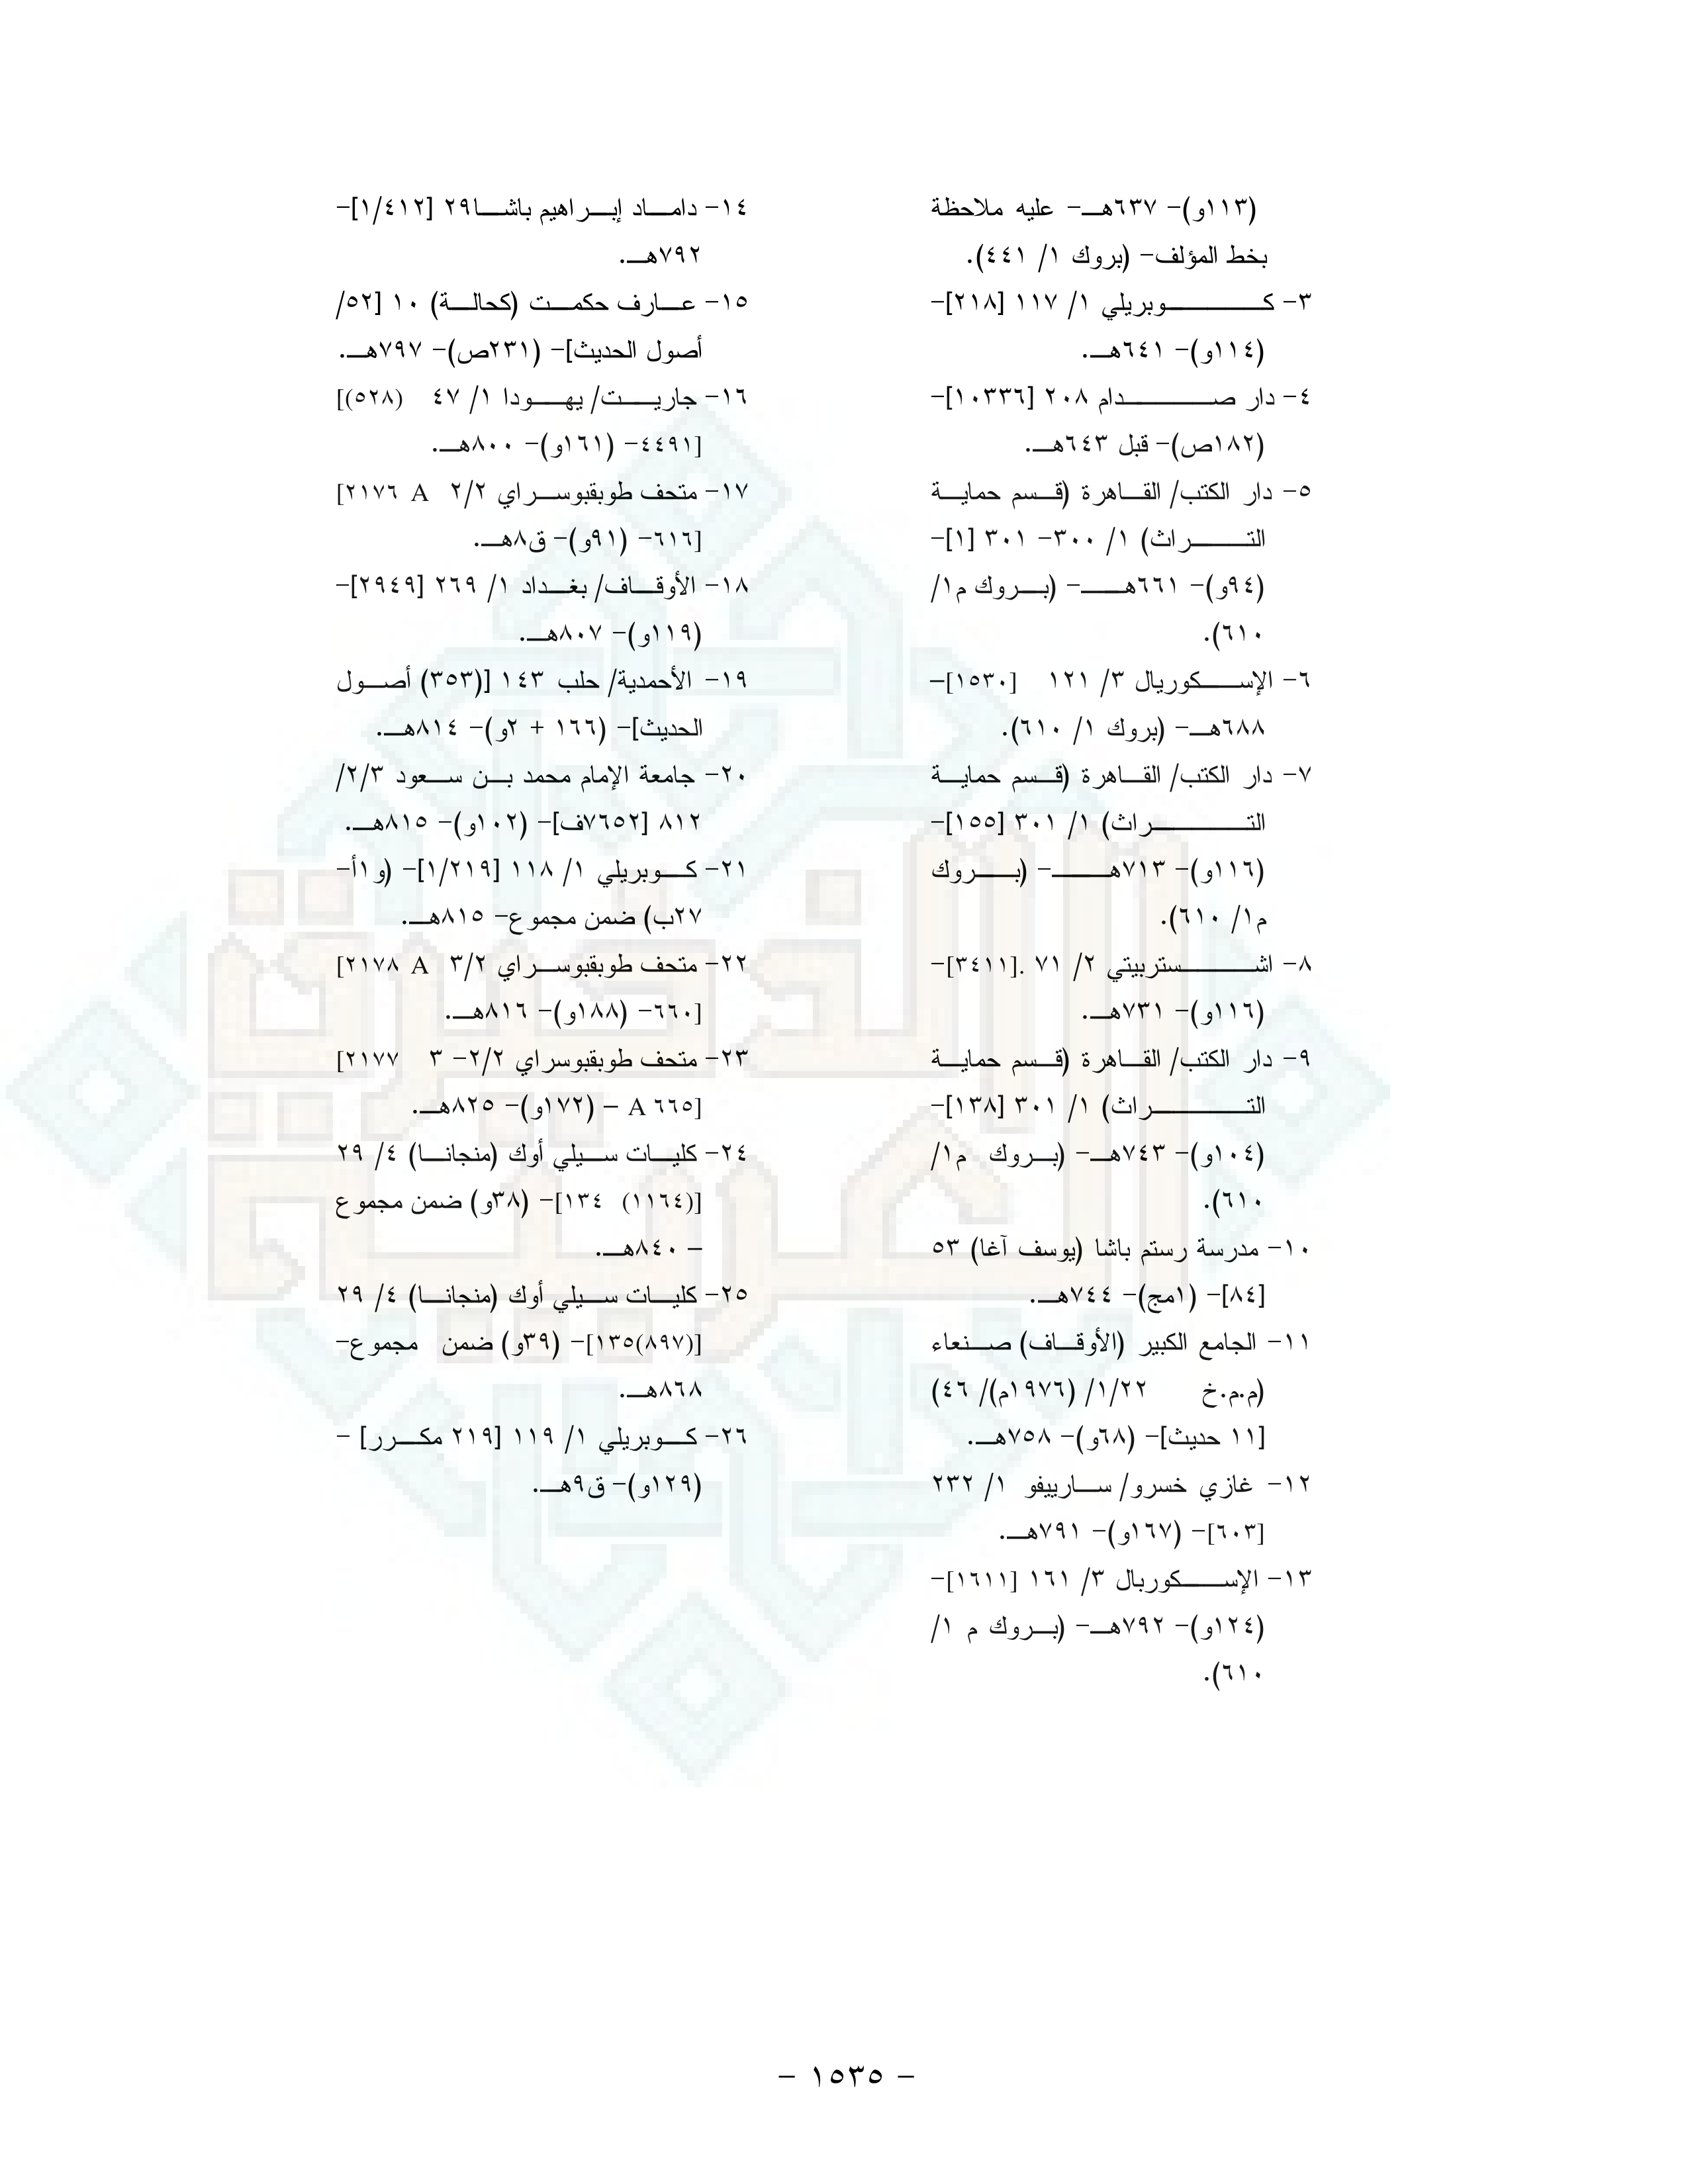 (١١٣و)- ٦٣٧هـ- عليه ملاحظة
بخط المؤلف- (بروك ١/ ٤٤١).
٣- كوبريلي ١/ ١١٧ [٢١٨]-
(١١٤و)- ٦٤١هـ.
٤- دار صدام ٢٠٨ [١٠٣٣٦]-
(١٨٢ص)- قبل ٦٤٣هـ.
٥- دار الكتب/ القاهرة (قسم حماية
التراث) ١/ ٣٠٠- ٣٠١ [١]-
(٩٤و)- ٦٦١هـ- (بروك م١/
٦١٠).
٦- الإسكوريال ٣/ ١٢١ [١٥٣٠]-
٦٨٨هـ- (بروك ١/ ٦١٠).
٧- دار الكتب/ القاهرة (قسم حماية
التراث) ١/ ٣٠١ [١٥٥]-
(١١٦و)- ٧١٣هـ- (بروك
م١/ ٦١٠).
٨- اشستربيتي ٢/ ٧١ .[٣٤١١]-
(١١٦و)- ٧٣١هـ.
٩- دار الكتب/ القاهرة (قسم حماية
التراث) ١/ ٣٠١ [١٣٨]-
(١٠٤و)- ٧٤٣هـ- (بروك م١/
٦١٠).
١٠- مدرسة رستم باشا (يوسف آغا) ٥٣
[٨٤]- (١مج)- ٧٤٤هـ.
١١- الجامع الكبير (الأوقاف) صنعاء
(م.م.خ ١/٢٢/ (١٩٧٦م)/ ٤٦)
[١١ حديث]- (٦٨و)- ٧٥٨هـ.
١٢- غازي خسرو/ سارييفو ١/ ٢٣٢
[٦٠٣]- (١٦٧و)- ٧٩١هـ.
١٣- الإسكوربال ٣/ ١٦١ [١٦١١]-
(١٢٤و)- ٧٩٢هـ- (بروك م ١/
٦١٠).
١٤- داماد إبراهيم باشا٢٩ [١/٤١٢]-
٧٩٢هـ.
١٥- عارف حكمت (كحالة) ١٠ [٥٢/
أصول الحديث]- (٢٣١ص)- ٧٩٧هـ.
١٦- جاريت/ يهودا ١/ ٤٧ (٥٢٨)]
[٤٤٩١- (١٦١و)- ٨٠٠هـ.
١٧- متحف طوبقبوسراي ٢/٢ A ٢١٧٦]
[٦١٦- (٩١و)- ق٨هـ.
١٨- الأوقاف/ بغداد ١/ ٢٦٩ [٢٩٤٩]-
(١١٩و)- ٨٠٧هـ.
١٩- الأحمدية/ حلب ١٤٣ [(٣٥٣) أصول
الحديث]- (١٦٦ + ٢و)- ٨١٤هـ.
٢٠- جامعة الإمام محمد بن سعود ٢/٣/
٨١٢ [٧٦٥٢ف]- (١٠٢و)- ٨١٥هـ.
٢١- كوبريلي ١/ ١١٨ [١/٢١٩]- (و١أ-
٢٧ب) ضمن مجموع- ٨١٥هـ.
٢٢- متحف طوبقبوسراي ٣/٢ A ٢١٧٨]
[٦٦٠- (١٨٨و)- ٨١٦هـ.
٢٣- متحف طوبقبوسراي ٢/٢- ٣ ٢١٧٧]
[٦٦٥ A - (١٧٢و)- ٨٢٥هـ.
٢٤- كليات سيلي أوك (منجانا) ٤/ ٢٩
[(١١٦٤) ١٣٤]- (٣٨و) ضمن مجموع
- ٨٤٠هـ.
٢٥- كليات سيلي أوك (منجانا) ٤/ ٢٩
[(٨٩٧)١٣٥]- (٣٩و) ضمن مجموع-
٨٦٨هـ.
٢٦- كوبريلي ١/ ١١٩ [٢١٩ مكرر] -
(١٢٩و)- ق٩هـ.
الذخيرة
العربية
- ١٥٣٥ -